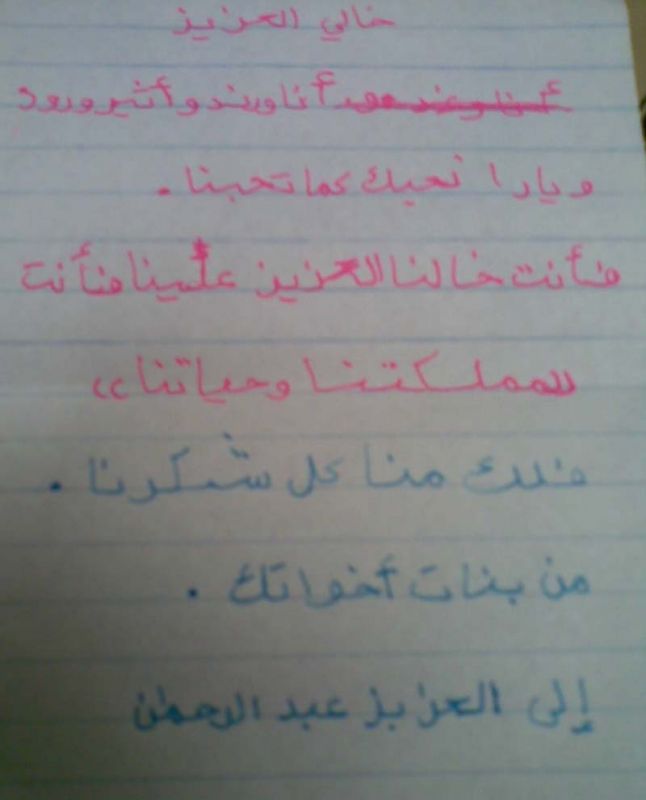 خالي العزيز
أنا وعند أنا ورند وأثير ورود
ويارا نحبك كما تحبنا .
فأنت خالنا العزيز علينا فأنت
المملكتنا وحياتنا ،،
فلك منا كل شكرنا .
من بنات أخواتك .
إلى العزيز عبد الرحمن